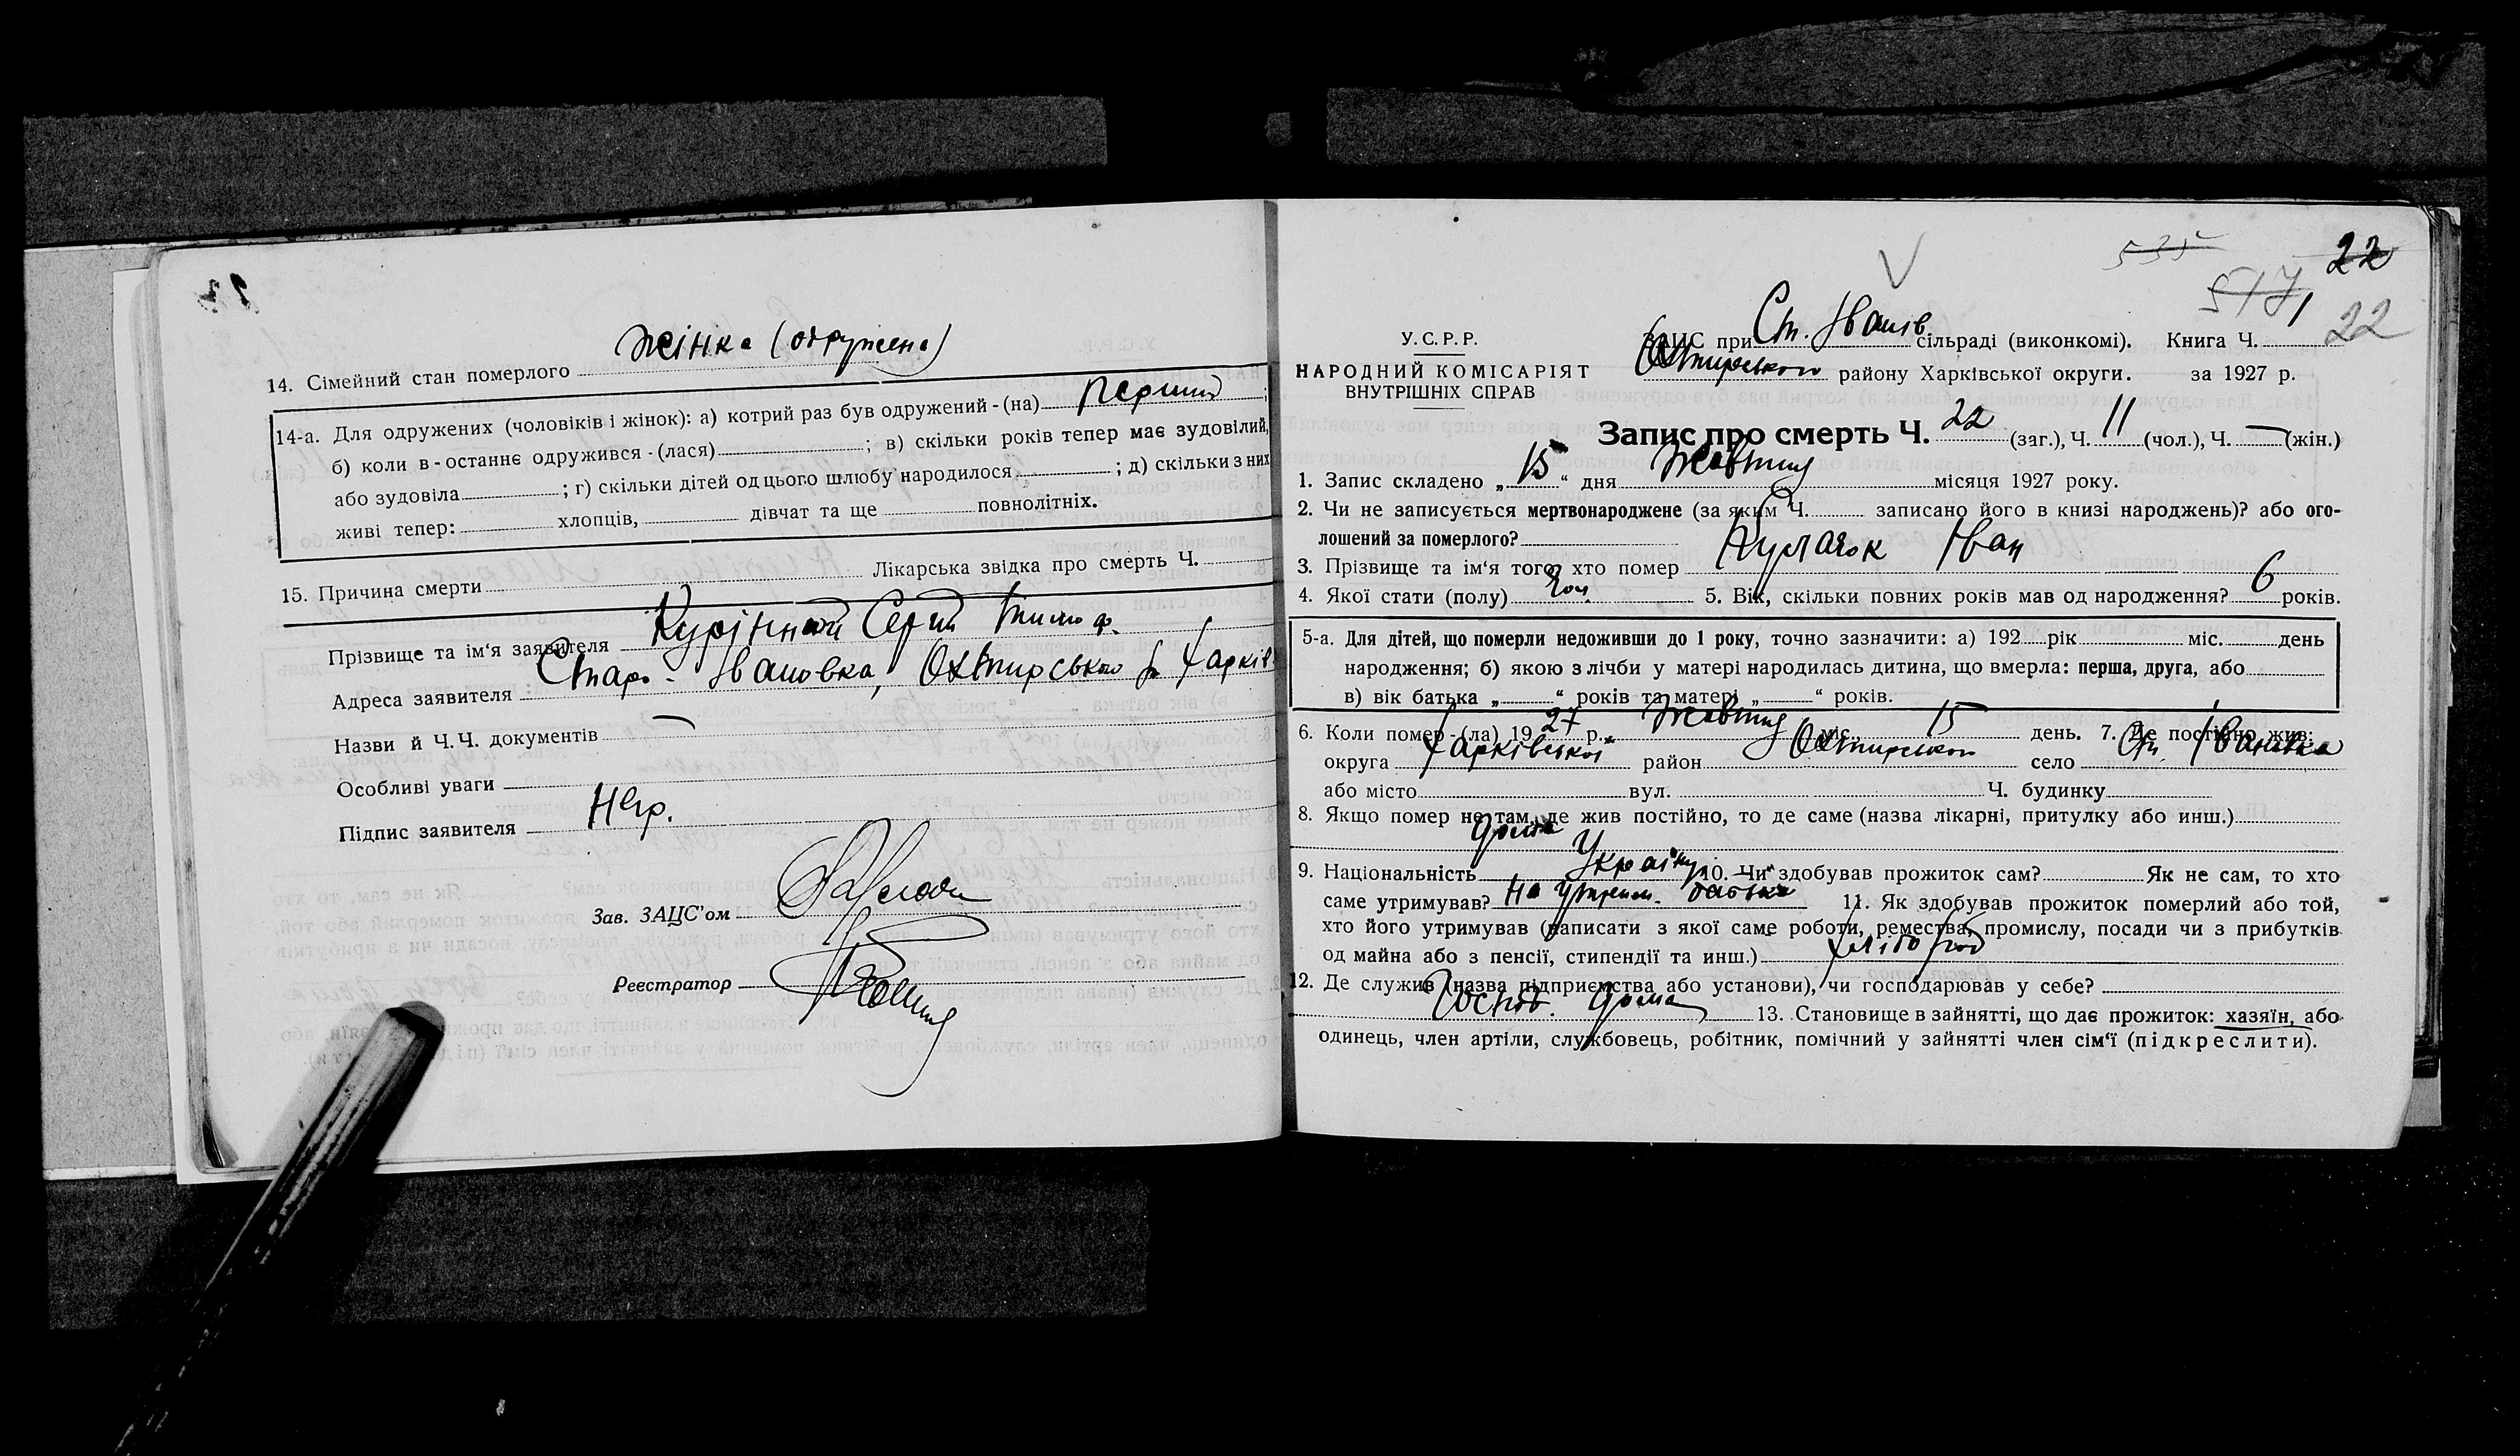 Жінка (одружена)
14. Сімейний стан померлого
14-а. Для одружених (чоловіків і жінок): а) котрий раз був одружений-(на) перший;
б) коли в-останнє одружився-(лася) ; в) скільки років тепер має зудовілий,
або зудовіла ; г) скільки дітей од цього шлюбу народилося ; д) скільки з них
живі тепер: хлопців, дівчат та ще повнолітніх.
15. Причина смерти Лікарська звідка про смерть Ч.
Прізвище та ім'я заявителя Курінний Сергій Тимоф.
Адреса заявителя Старо-Івановка, Охтирського р. Харків
Назви й Ч.Ч. документів —
Особливі уваги
Підпис заявителя Негр.
Зав. ЗАЦС'ом
Реєстратор
535 22
517
У.С.Р.Р.
НАРОДНИЙ КОМІСАРІЯТ
ВНУТРІШНІХ СПРАВ
ЗАЦС при Ст. Іванів. сільраді (виконкомі). Книга Ч. 1 22
Охтирського району Харківської округи. за 1927 р.
Запис про смерть Ч. 22 (заг.), Ч. 11 (чол.), Ч. — (жін.)
1. Запис складено „15“ дня Жовтня місяця 1927 року.
2. Чи не записується мертвонароджене (за яким Ч. записано його в книзі народжень)? або ого-
лошений за померлого?
3. Прізвище та ім'я того, хто помер Іван
4. Якої стати (полу) Чол. 5. Вік, скільки повних років мав од народження? 6 років.
5-а. Для дітей, що померли недоживши до 1 року, точно зазначити: а) 192 рік міс. день
народження; б) якою з лічби у матері народилась дитина, що вмерла: перша, друга, або
в) вік батька „ “ років та матері „ “ років.
6. Коли помер-(ла) 1927 р. Жовтня міс. 15 день. 7. Де постійно жив:
округа Харківської район Охтирськой село Ст. Іванівка
або місто вул. Ч. будинку
8. Якщо помер не там, де жив постійно, то де саме (назва лікарні, притулку або инш.)
дома
9. Національність Українц. 10. Чи здобував прожиток сам? Як не сам, то хто
саме утримував? На утрим. батька 11. Як здобував прожиток померлий або той,
хто його утримував (написати з якої саме роботи, ремества, промислу, посади чи з прибутків
од майна або з пенсії, стипендії та инш.) Хлібороб
12. Де служив (назва підприємства або установи), чи господарював у себе?
Господ. дома 13. Становище в зайнятті, що дає прожиток: хазяїн, або
одинець, член артіли, службовець, робітник, помічний у зайнятті член сім'ї (підкреслити).